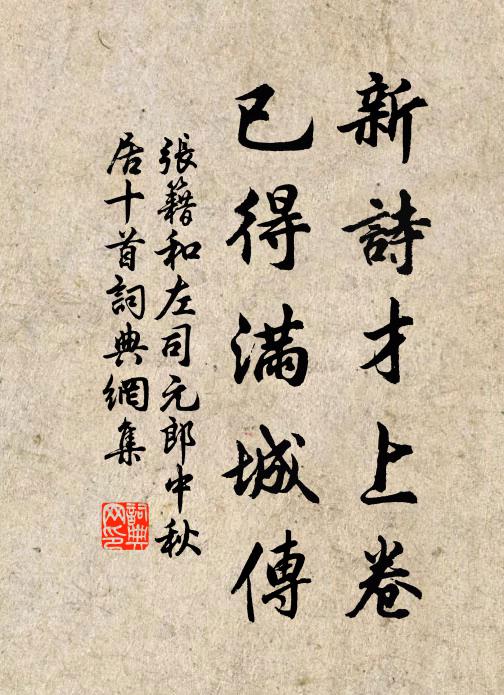 新詩才上卷
已得滿城傳
張籍和左司元郎中秋
居十首詞典網集
詞典网印